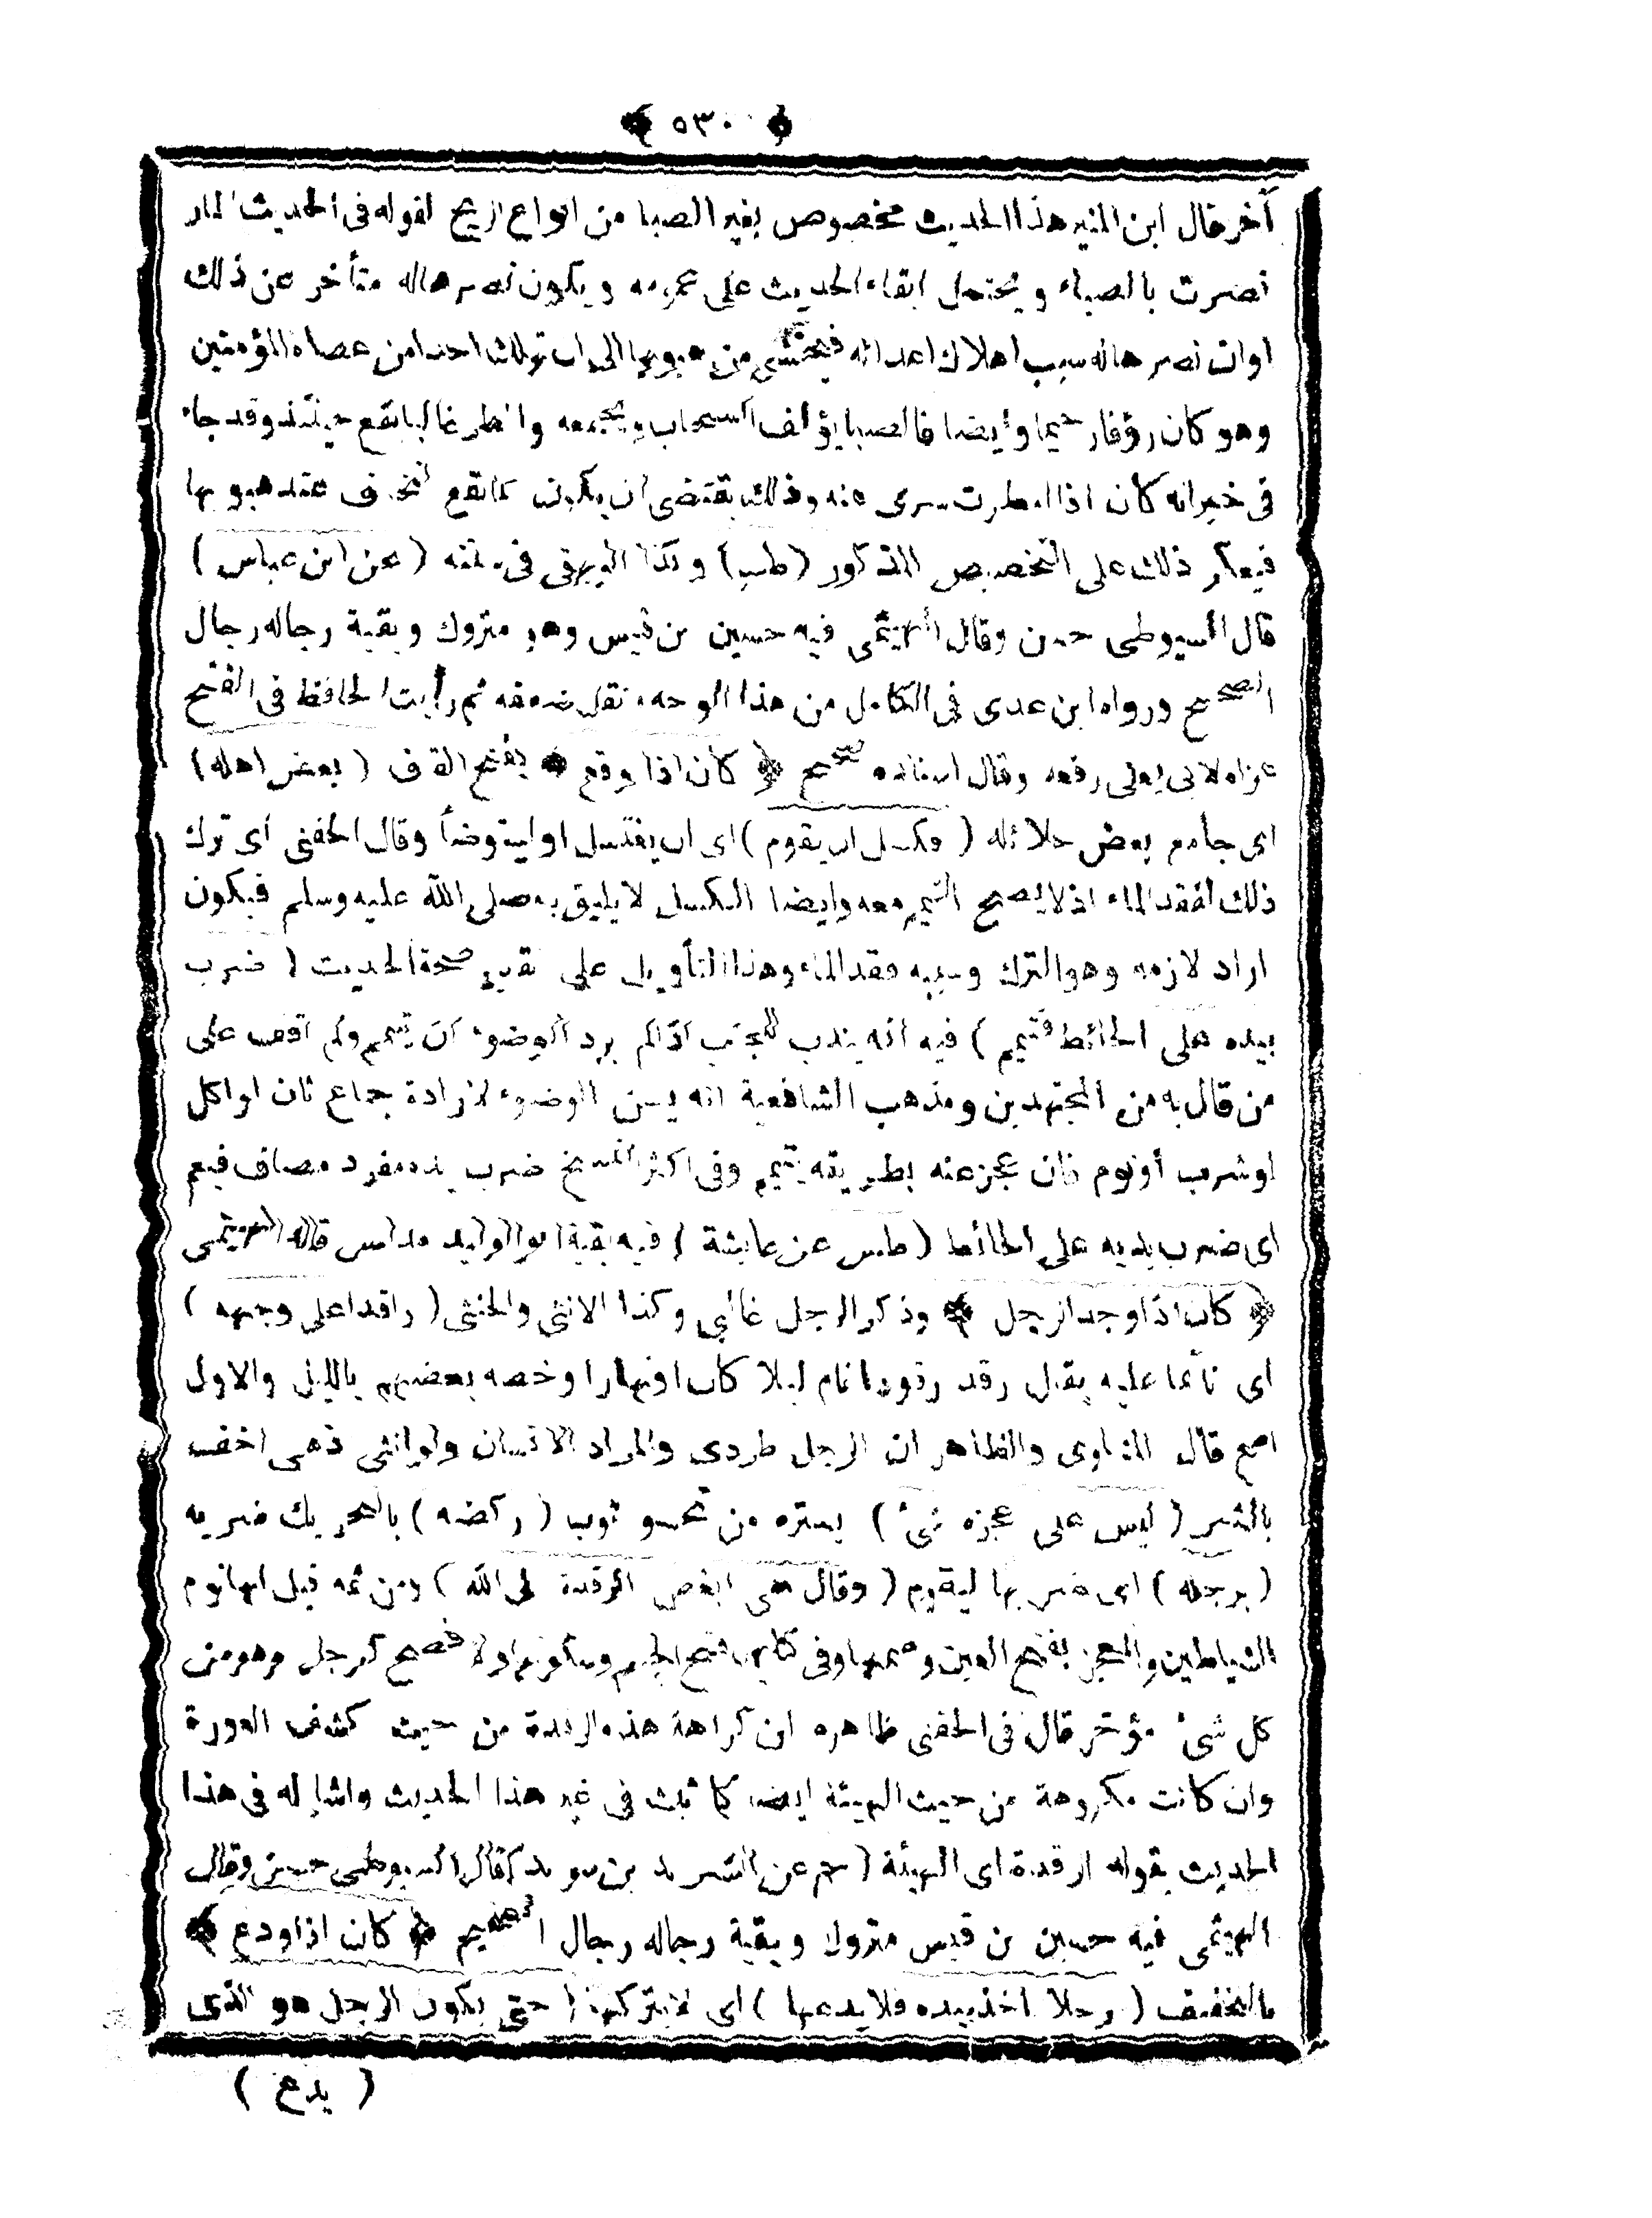 ﴿ ٥٣٠ ﴾
آخر قال ابن المنير هذا الحديث مخصوص بغير الصبا من انواع الريح لقوله فى الحديث المار
نصرت بالصباء ويحتمل ابقاء الحديث على عمومه ويكون نصرها له متأخر عن ذلك
او ان نصرها له سبب اهلاك اعدائه فيخشى من هبوبها الى ان تهلك احدا من عصاة المؤمنين
وهو كان رؤفا رحيما وأيضا فالصبا يؤلف السحاب ويجمعه والمطر غالبا يقع حينئذ وقد جاء
فى خبر انه كان اذا امطرت سرى عنه وذلك يقتضى ان يكون مما يقع التخوف عند هبوبها
فيعكر ذلك على التخصيص المذكور (طب) وكذا البيهقى فى سننه (عن ابن عباس)
قال السيوطى حسن وقال الهيثمى فيه حسين بن قيس وهو متروك وبقية رجاله رجال
الصحيح ورواه ابن عدى فى الكامل من هذا الوجه ونقل ضعفه ثم رأيت الحافظ فى الفتح
عزاه لابى يعلى رفعه وقال اسناده صحيح ﴿ كان اذا وقع ﴾ بفتح القاف (بعض اهله)
اى جامع بعض حلائله (فكسل ان يقوم) اى ان يغتسل او ليتوضأ وقال الحفنى اى ترك
ذلك لفقد الماء اذ لا يصح التيمم معه وايضا الكسل لا يليق به صلى الله عليه وسلم فيكون
اراد لازمه وهو الترك وسببه فقد الماء وهذا التأويل على تقدير صحة الحديث (ضرب
بيده على الحائط فتيمم) فيه انه يندب للجنب اذا لم يرد الوضوء ان يتيمم ولم اقف على
من قال به من المجتهدين ومذهب الشافعية انه يسن الوضوء لارادة جماع ثان او اكل
او شرب أو نوم فان عجز عنه بطريقه تيمم وفى اكثر النسخ ضرب يده مفرد مضاف فيعم
اى ضرب يديه على الحائط (طس عن عايشة) فيه بقية ابو الوليد مدلس قاله الهيثمى
﴿ كان اذا وجد الرجل ﴾ وذكر الرجل غالبى وكذا الانثى والخنثى (راقدا على وجهه)
اى نائما عليه يقال رقد رقودا نام ليلا كان او نهارا وخصه بعضهم بالليل والاول
اصح قال المناوى والظاهر ان الرجل طردى والمراد الانسان ولو انثى فهى اخف
بالستر (ليس على عجزه شئ) يستره من نحو ثوب (ركضه) بالتحريك ضربه
(برجله) اى ضربها ليقوم (وقال هى ابغض الرقدة الى الله) ومن ثمه قيل انها نوم
الشياطين والعجز بفتح العين وضمها وفى كليهما فتح الجيم وسكونها والافصح كرجل وهو من
كل شئ مؤخر قال فى الحفنى ظاهره ان كراهة هذه الرقدة من حيث كشف العورة
وان كانت مكروهة من حيث الهيئة ايضا كما ثبت فى غير هذا الحديث واشار له فى هذا
الحديث بقوله ارقدة اى الهيئة (حم عن الشريد بن سويد) قال السيوطى حسن وقال
الهيثمى فيه حسين بن قيس متروك وبقية رجاله رجال الصحيح ﴿ كان اذا ودع ﴾
بالتخفيف (رجلا اخذ بيده فلا يدعها) اى لا يتركها (حتى يكون الرجل هو الذى
( يدع )